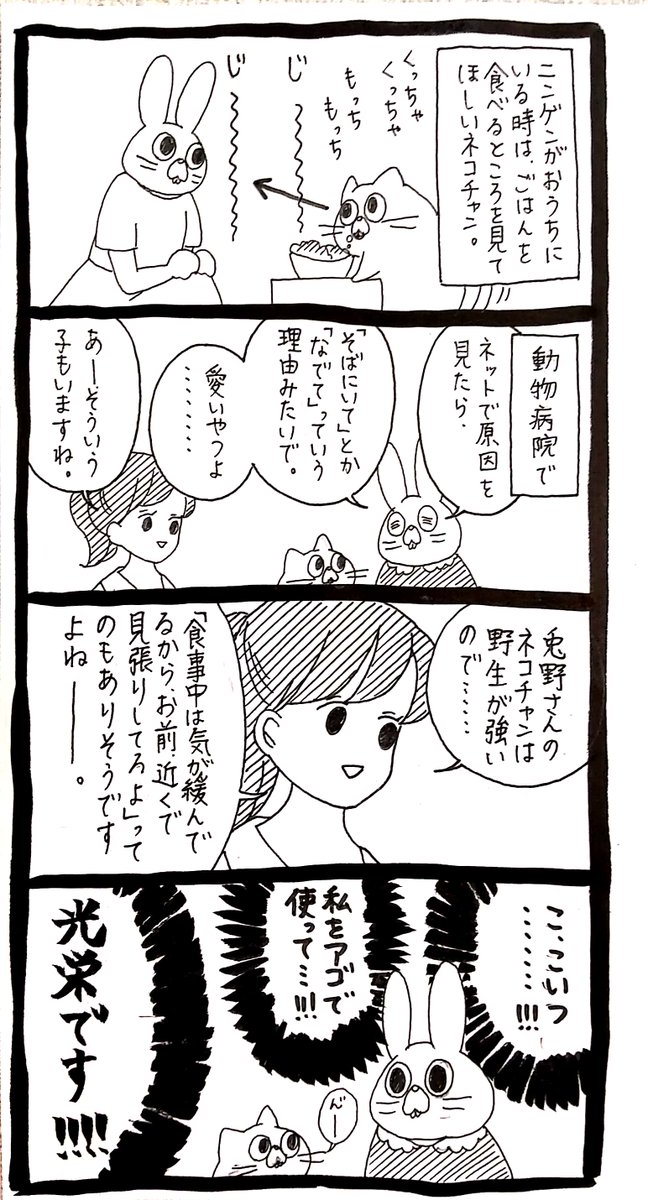 ニンゲンがおうちに
いる時は、ごはんを
食べるところを見て
ほしいネコチャン。
くっちゃ
くっちゃ
もっち
もっち
じ〜〜〜
じ〜〜〜
動物病院で
ネットで原因を
見たら、
「そばにいて」とか
「なでて」っていう
理由みたいで。
愛いやつよ
………
あーそういう
子もいますね。
兎野さんの
ネコチャンは
野生が強い
ので……
「食事中は気が緩んで
るから、お前、近くで
見張りしてろよ」って
のもありそうです
よねー。
こ、こいつ
………!!!
私をアゴで
使って…!!!
んー
光栄です!!!!